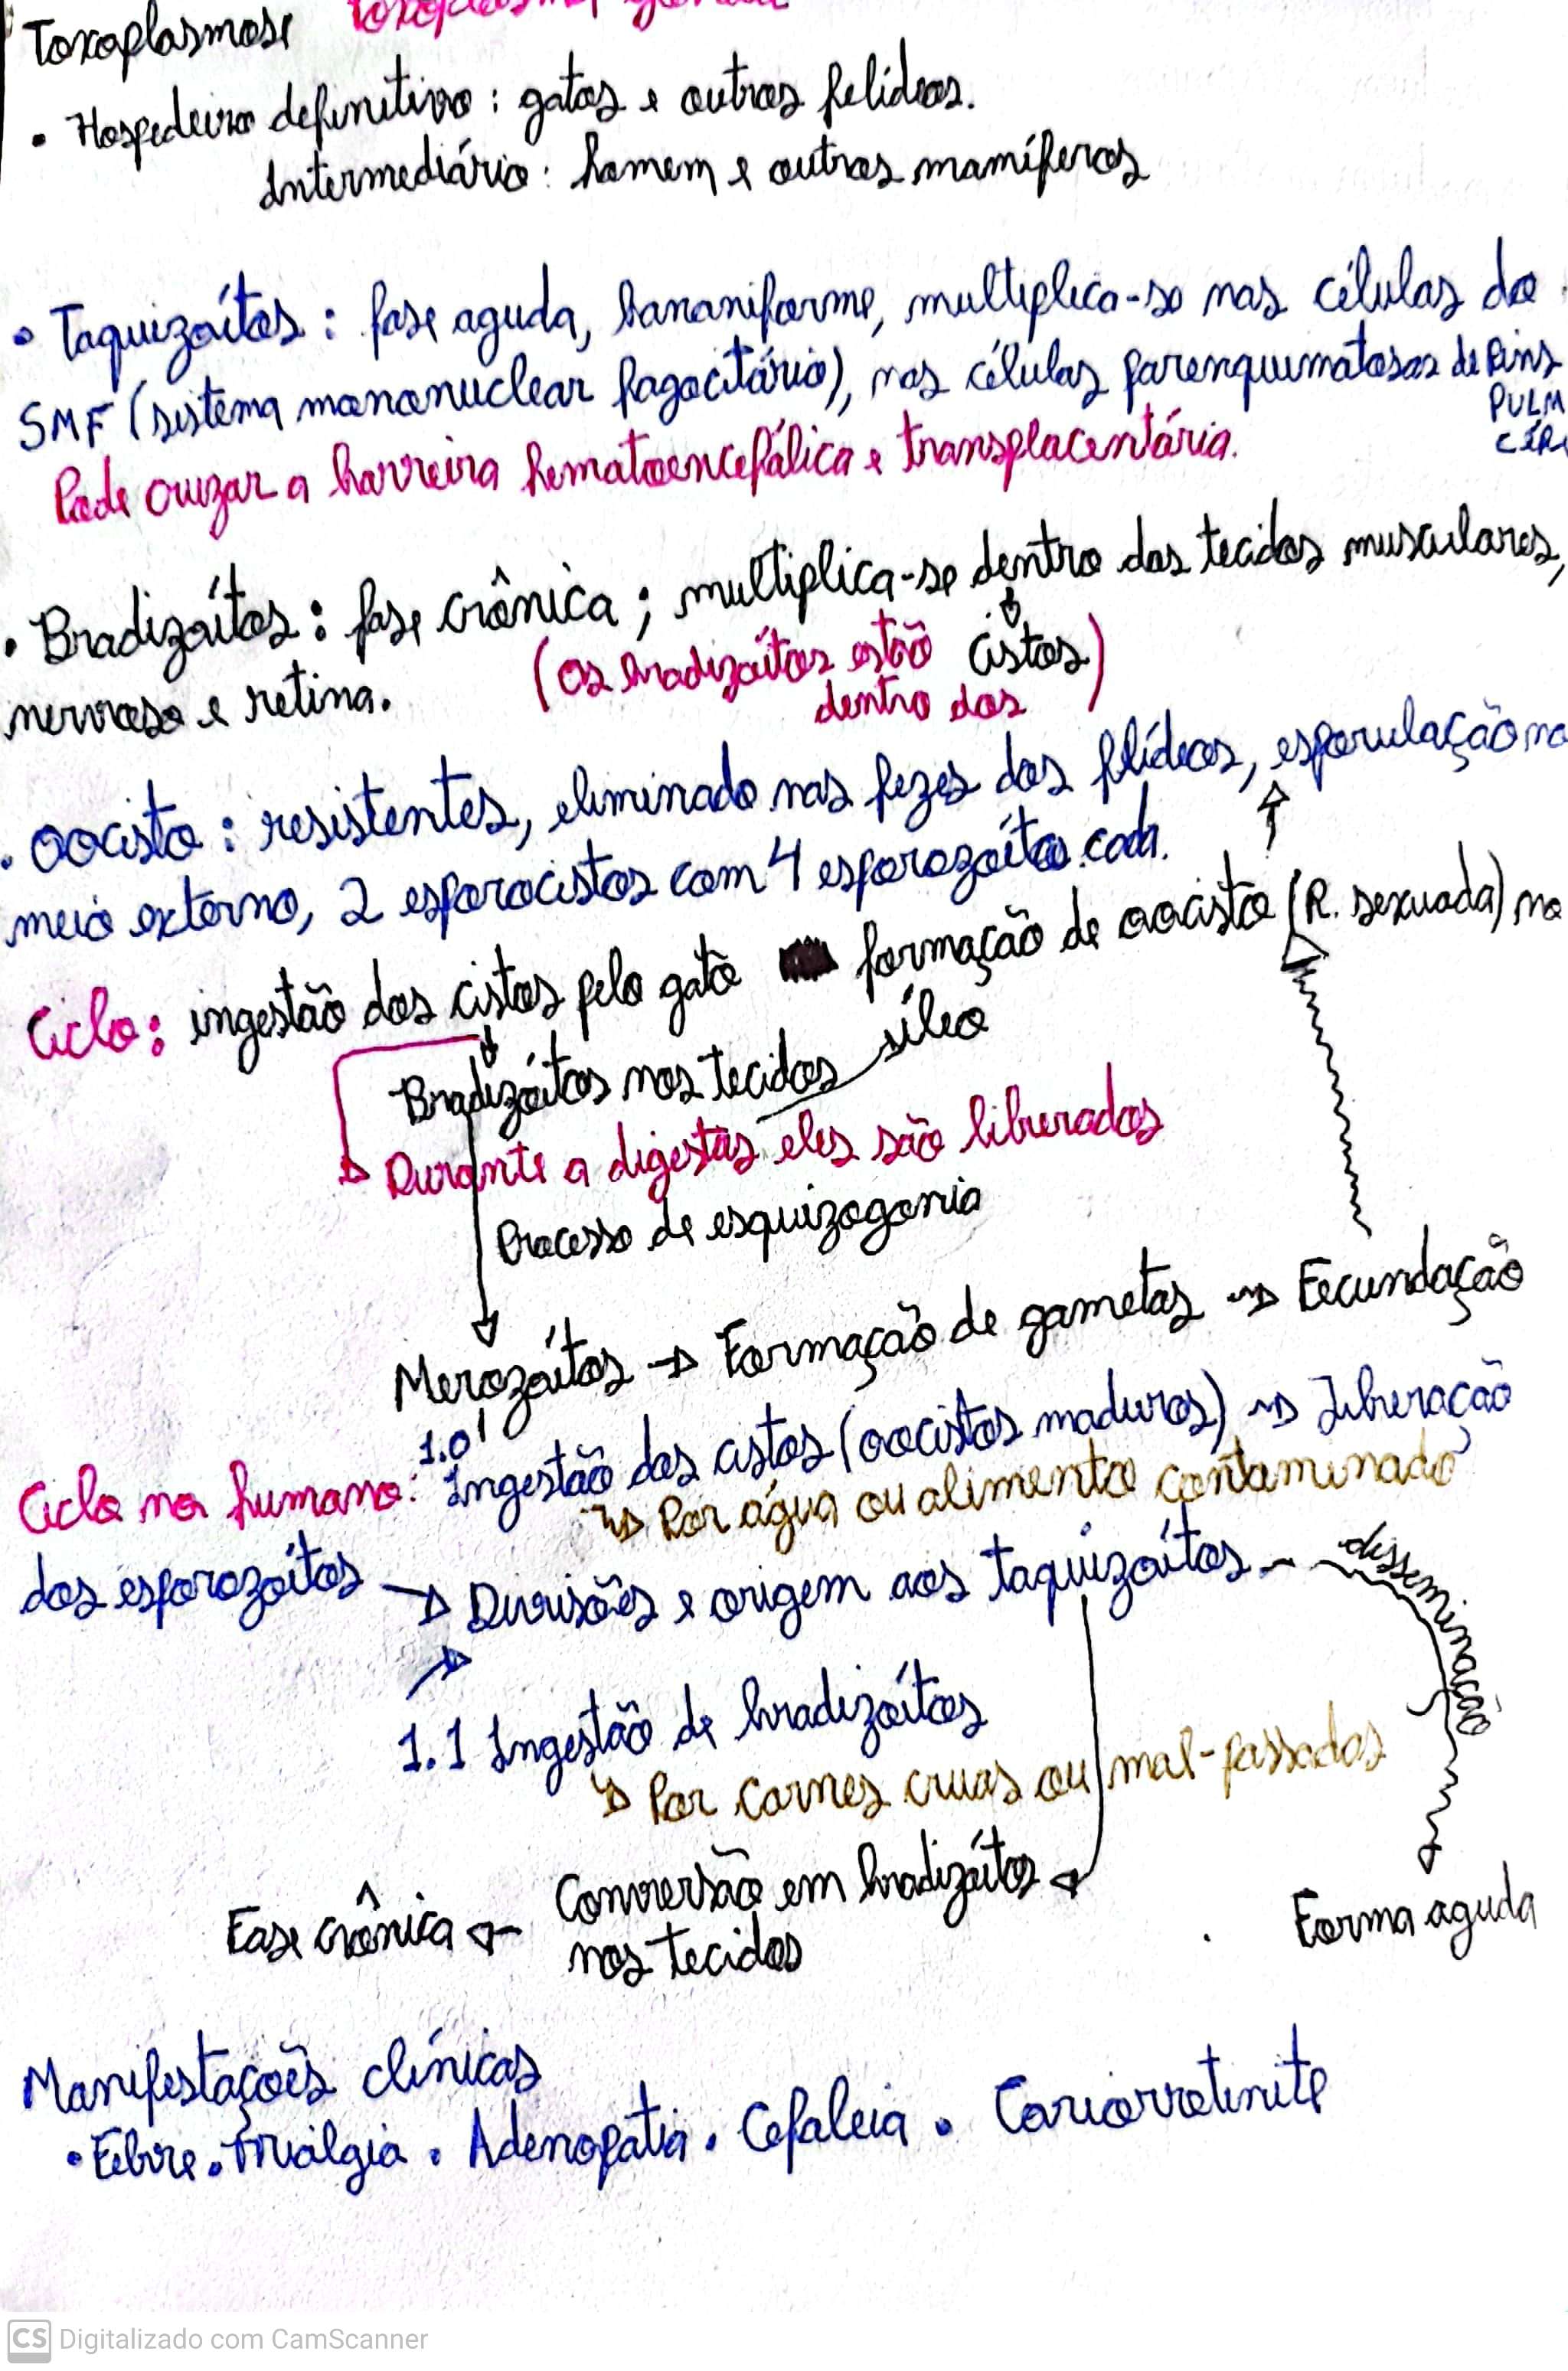 Toxoplasmose Toxoplasma gondii
• Hospedeiro definitivo: gatos e outros felídeos.
Intermediário: homem e outros mamíferos
• Taquizoítos: fase aguda, bananiforme, multiplica-se nas células do
SMF (sistema mononuclear fagocitário), nas células parenquimatosas de Rins
PULM
CÉR
Pode cruzar a barreira hematoencefálica e transplacentária.
• Bradizoítos: fase crônica; multiplica-se dentro dos tecidos musculares,
(os bradizoítos estão cistos)
nervoso e retina.
dentro dos
• Oocisto: resistentes, eliminado nas fezes dos felídeos, esporulação no
meio externo, 2 esporocistos com 4 esporozoítos cada.
Ciclo: ingestão dos cistos pelo gato formação de oocisto (R. sexuada) no
íleo
Bradizoítos nos tecidos
Durante a digestão eles são liberados
Processo de esquizogonia
Merozoítos → Formação de gametas → Fecundação
Ciclo no humano: 1.0 Ingestão dos cistos (oocistos maduros) → Liberação
→ Por água ou alimento contaminado
dos esporozoítos → Divisões e origem aos taquizoítos
disseminação
1.1 Ingestão de bradizoítos
→ Por carnes cruas ou mal-passados
Fase crônica ← Conversão em bradizoítos
nos tecidos
Forma aguda
Manifestações clínicas
• Febre • Mialgia • Adenopatia • Cefaleia • Coriorretinite
CS Digitalizado com CamScanner